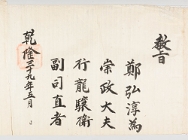 敎旨
鄭弘淳爲
崇政大夫
行龍驤衛
副司直者
乾隆三十九年五月